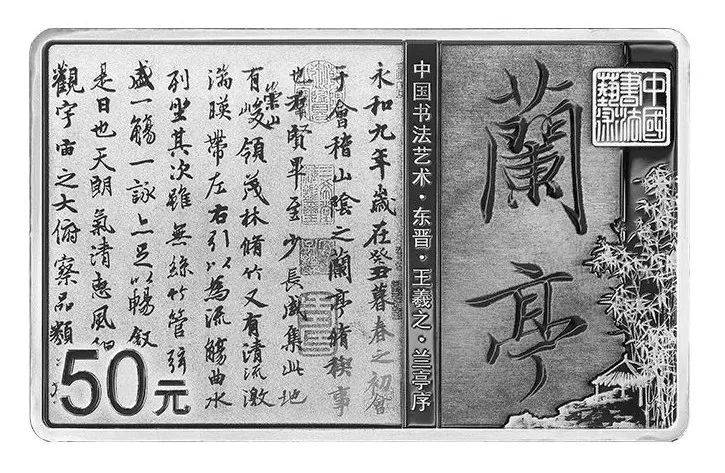 中國
書法
藝術
蘭亭
中国书法艺术·东晋·王羲之·兰亭序
永和九年歲在癸丑暮春之初會
于會稽山陰之蘭亭脩禊事
也羣賢畢至少長咸集此地
有崇山峻領茂林脩竹又有清流激
湍暎帶左右引以為流觴曲水
列坐其次雖無絲竹管弦
盛一觴一詠亦足以暢敘
是日也天朗氣清惠風和
觀宇宙之大俯察品類
50元